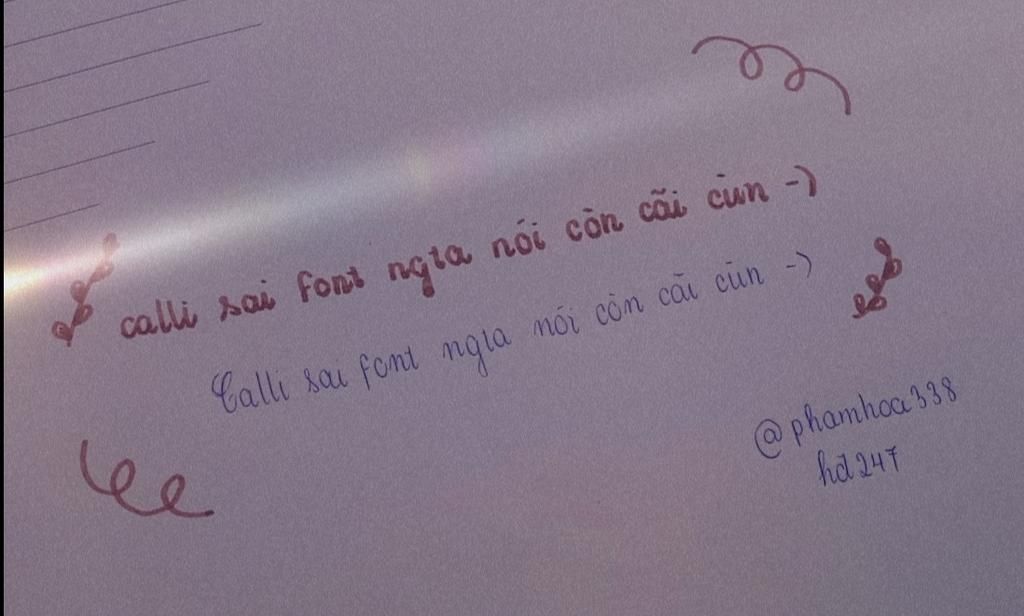 calli sai font ngta nói còn cãi cùn -)
Calli sai font ngta nói còn cãi cùn -)
@phamhoa338
hd247